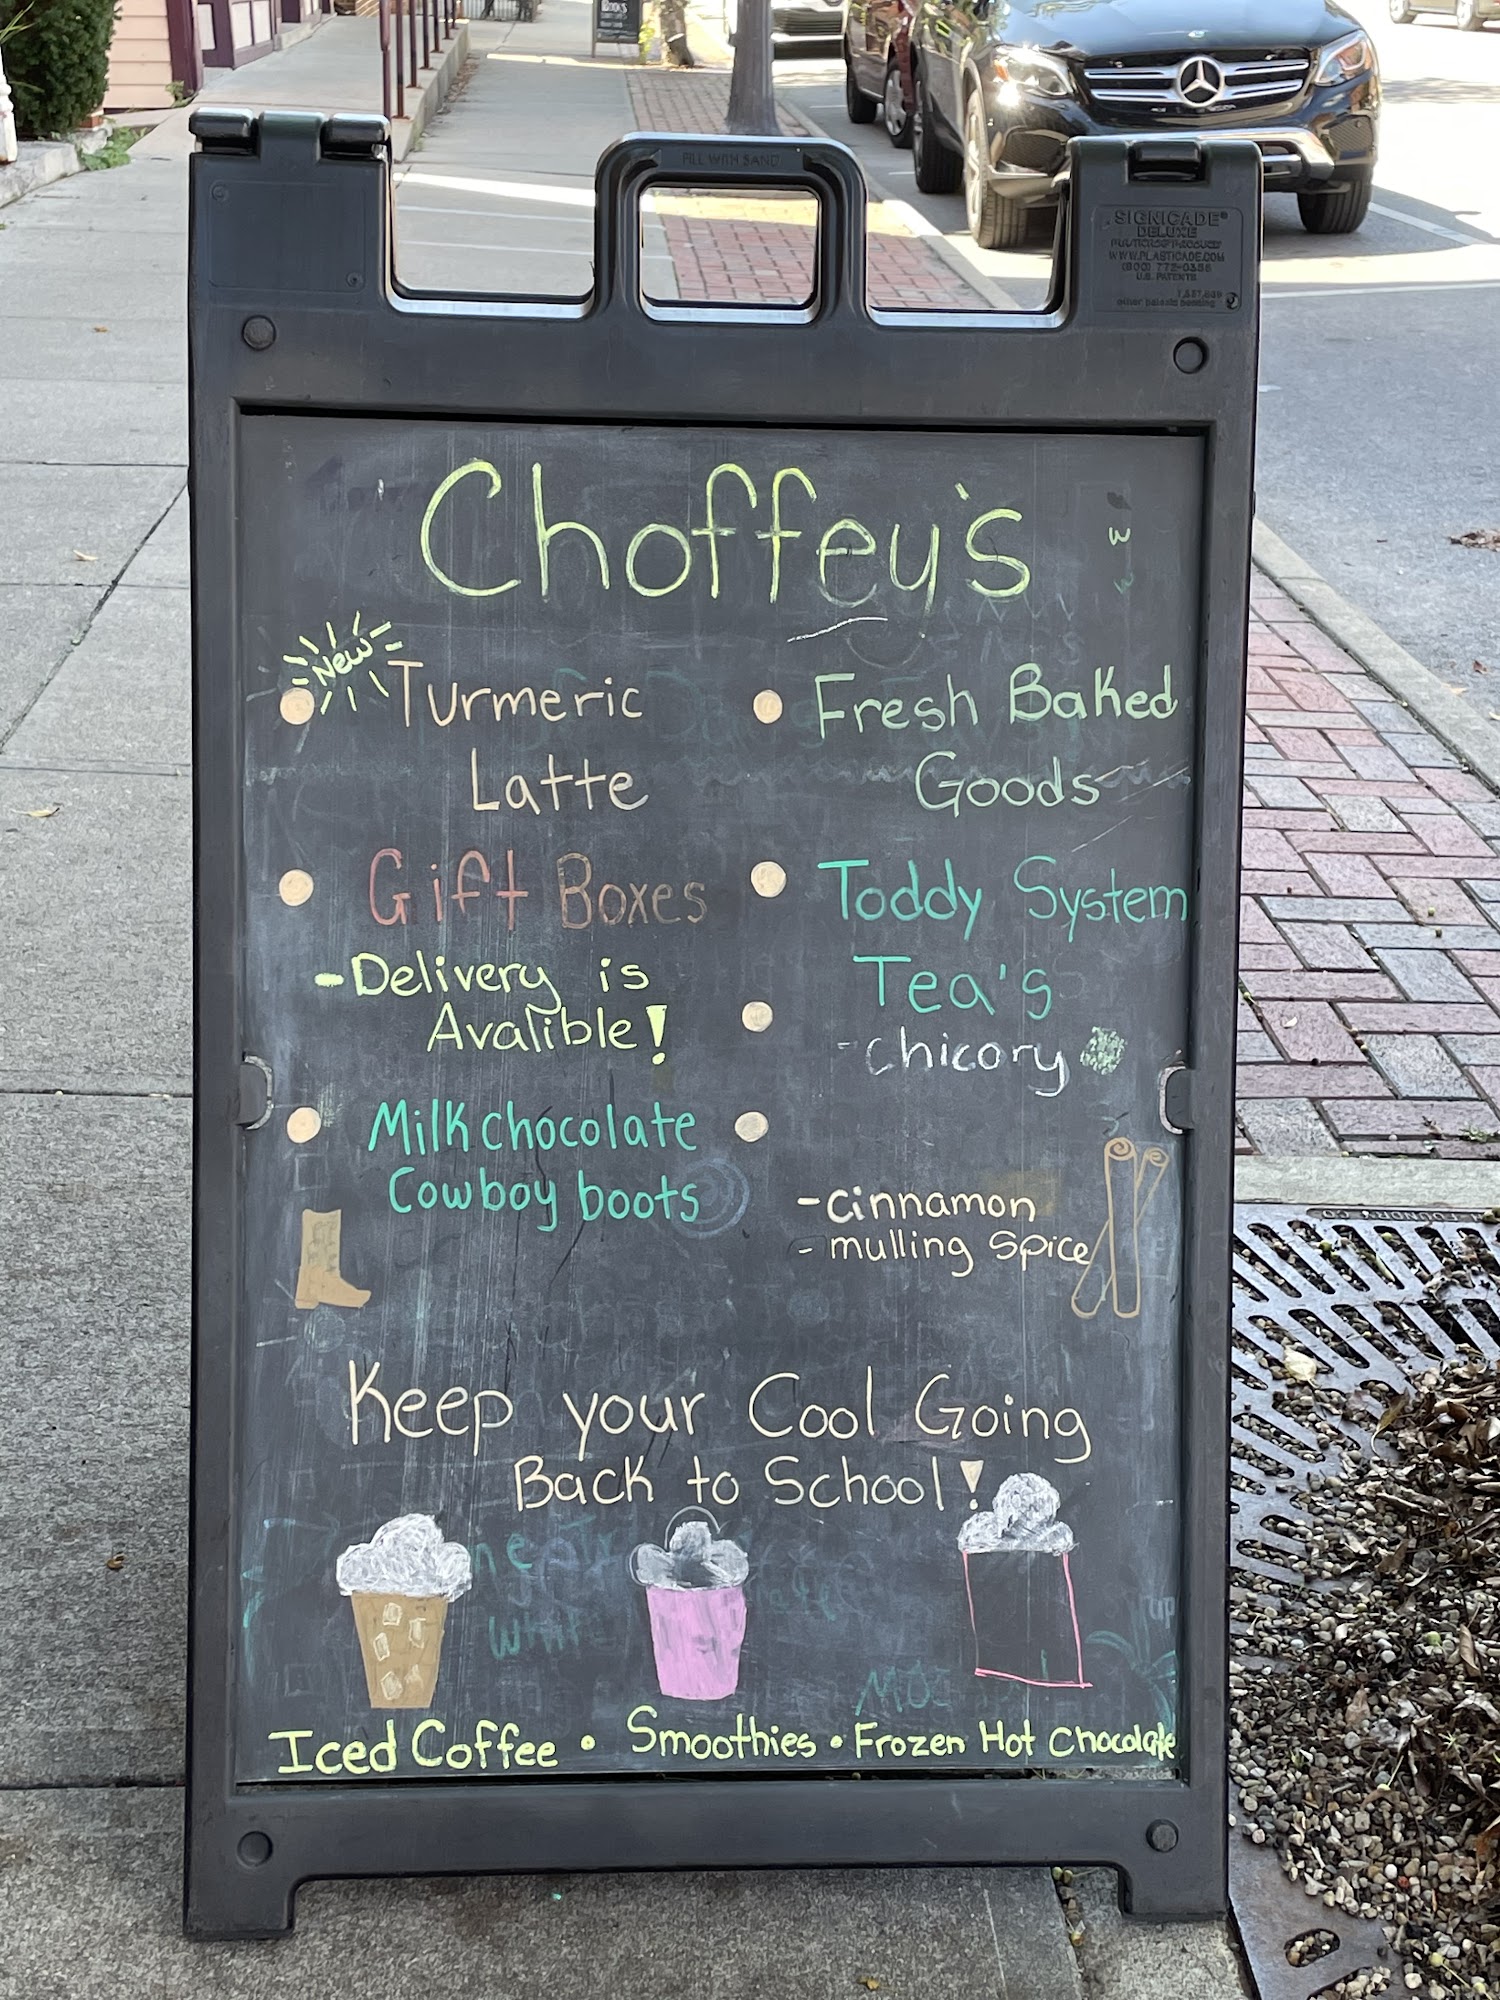 BOOKS
FILL WITH SAND
SIGNICADE®
DELUXE
WWW.PLASTICADE.COM
(800) 772-0355
U.S. PATENTS
other patents pending
Choffey's
New
Turmeric
Latte
Gift Boxes
-Delivery is
Avalible!
Milk chocolate
Cowboy boots
Fresh Baked
Goods
Toddy System
Tea's
-chicory
-cinnamon
- mulling spice
Keep your Cool Going
Back to School!
Iced Coffee • Smoothies • Frozen Hot Chocolate